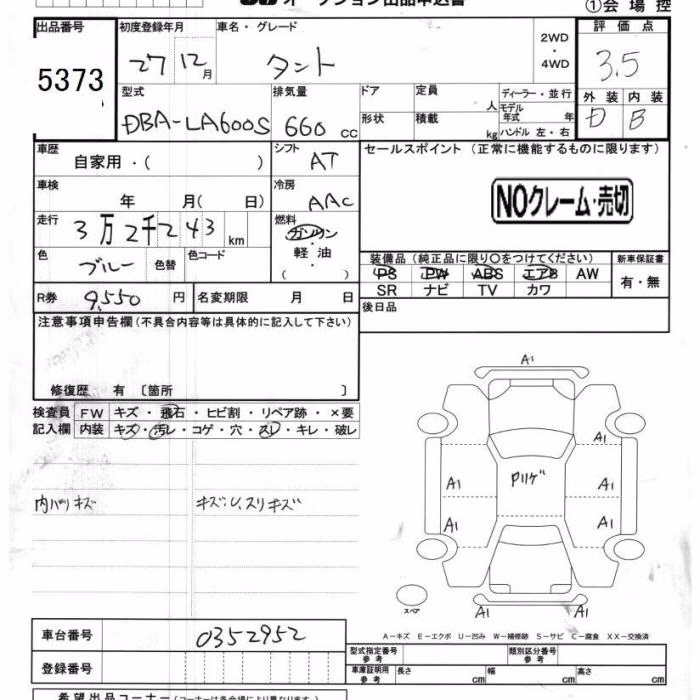 オークション出品申込書
①会場控
出品番号 初度登録年月 車名・グレード 2WD・4WD 評価点
5373 27 12月 タント 3.5
型式 排気量 ドア 定員 人 ディーラー・並行 外装 内装
DBA-LA600S 660cc 形状 積載 kg モデル年式 年 ハンドル 左・右 D B
車歴 自家用・( ) シフト AT セールスポイント (正常に機能するものに限ります)
車検 年 月( 日) 冷房 AAC NOクレーム・売切
走行 3万2千243km 燃料 ガソリン・軽油・( )
色 ブルー 色替 色コード 装備品(純正品に限り○をつけてください) 新車保証書
PS PW ABS エアB AW 有・無
SR ナビ TV カワ
R券 9,550円 名変期限 月 日 後日品
注意事項申告欄(不具合内容等は具体的に記入して下さい)
修復歴 有 〔箇所 〕
検査員 FW キズ・飛石・ヒビ割・リペア跡・×要
記入欄 内装 キズ・汚レ・コゲ・穴・スレ・キレ・破レ
内ハリキズ キズ:U,スリキズ
A1
A1
A1 A1
A1 A1
スペア A1 A1
A-キズ E-エクボ U-凹み W-補修跡 S-サビ C-腐食 XX-交換済
車台番号 0352952 型式指定番号 参考 類別区分番号 参考
登録番号 車庫証明用 参考 長さ cm 幅 cm 高さ cm
希望出品コーナー